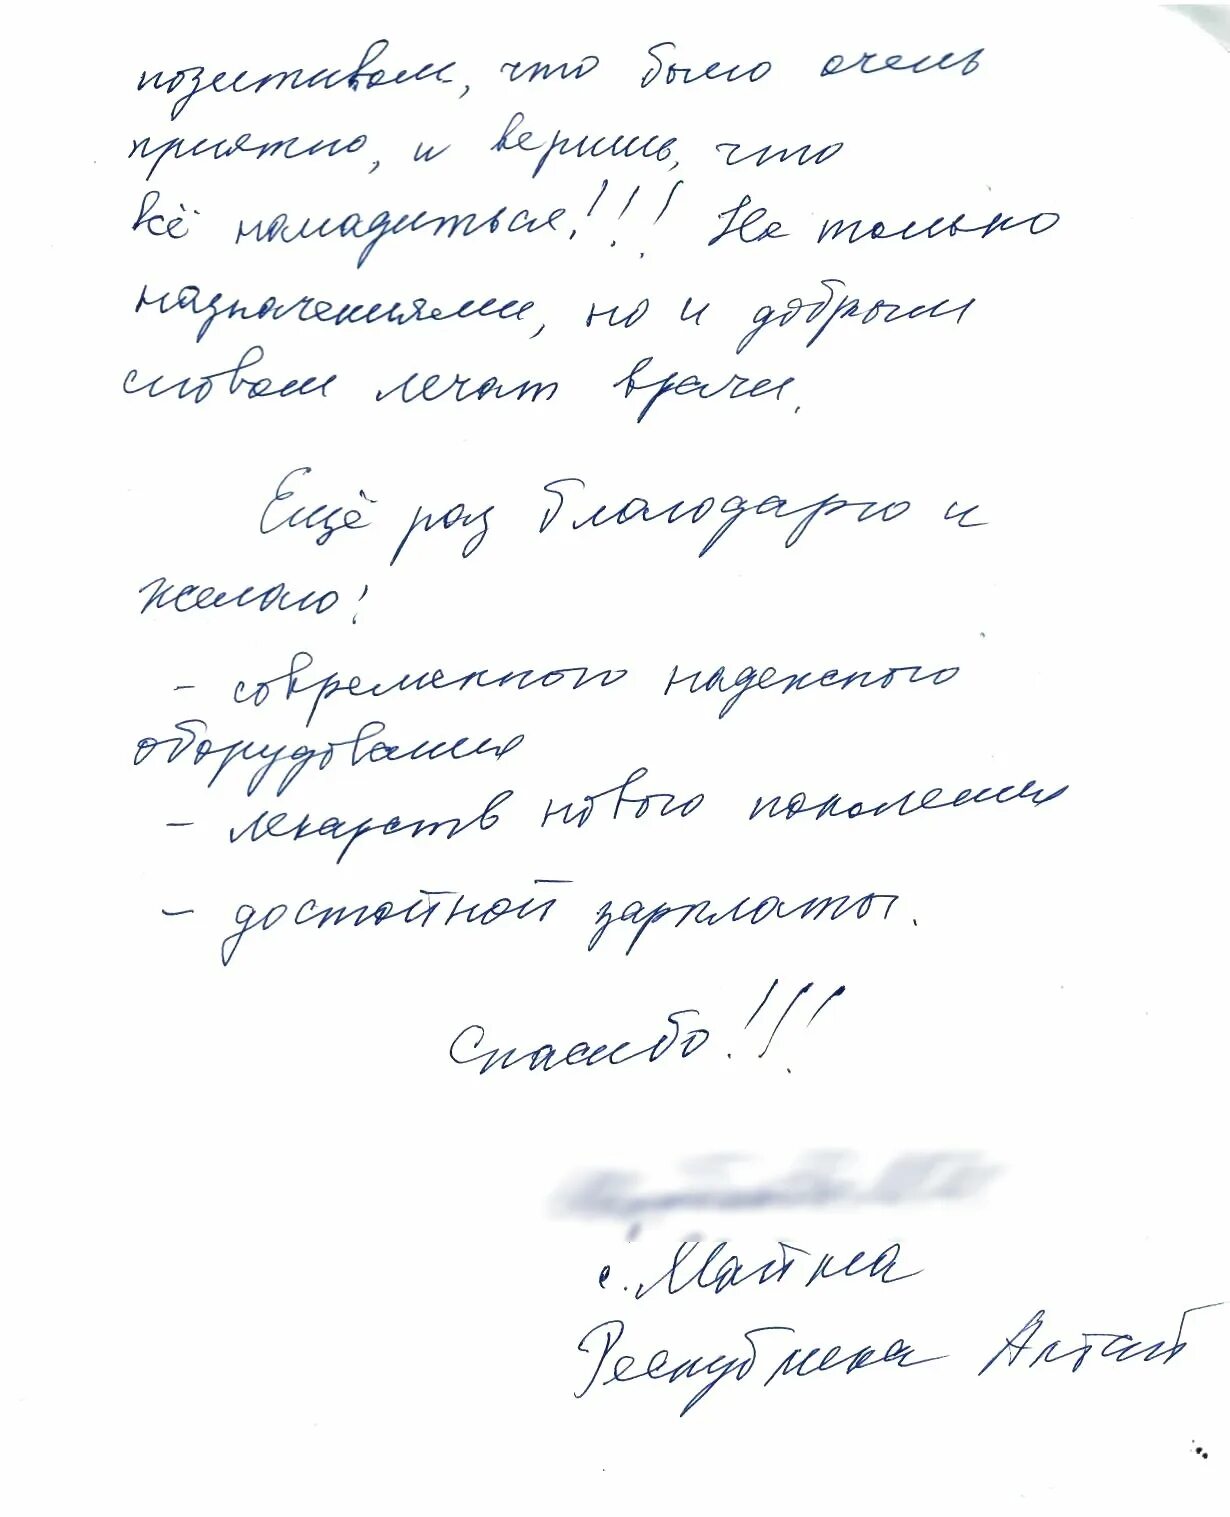 позитивом, что было очень
приятно, и веришь, что
всё наладиться!!! Не только
назначениями, но и добрым
словом лечат врачи.
Ещё раз благодарю и
желаю!
- современного надежного
оборудования
- лекарств нового поколения
- достойной зарплаты.
Спасибо!!!
с. Майма
Республика Алтай